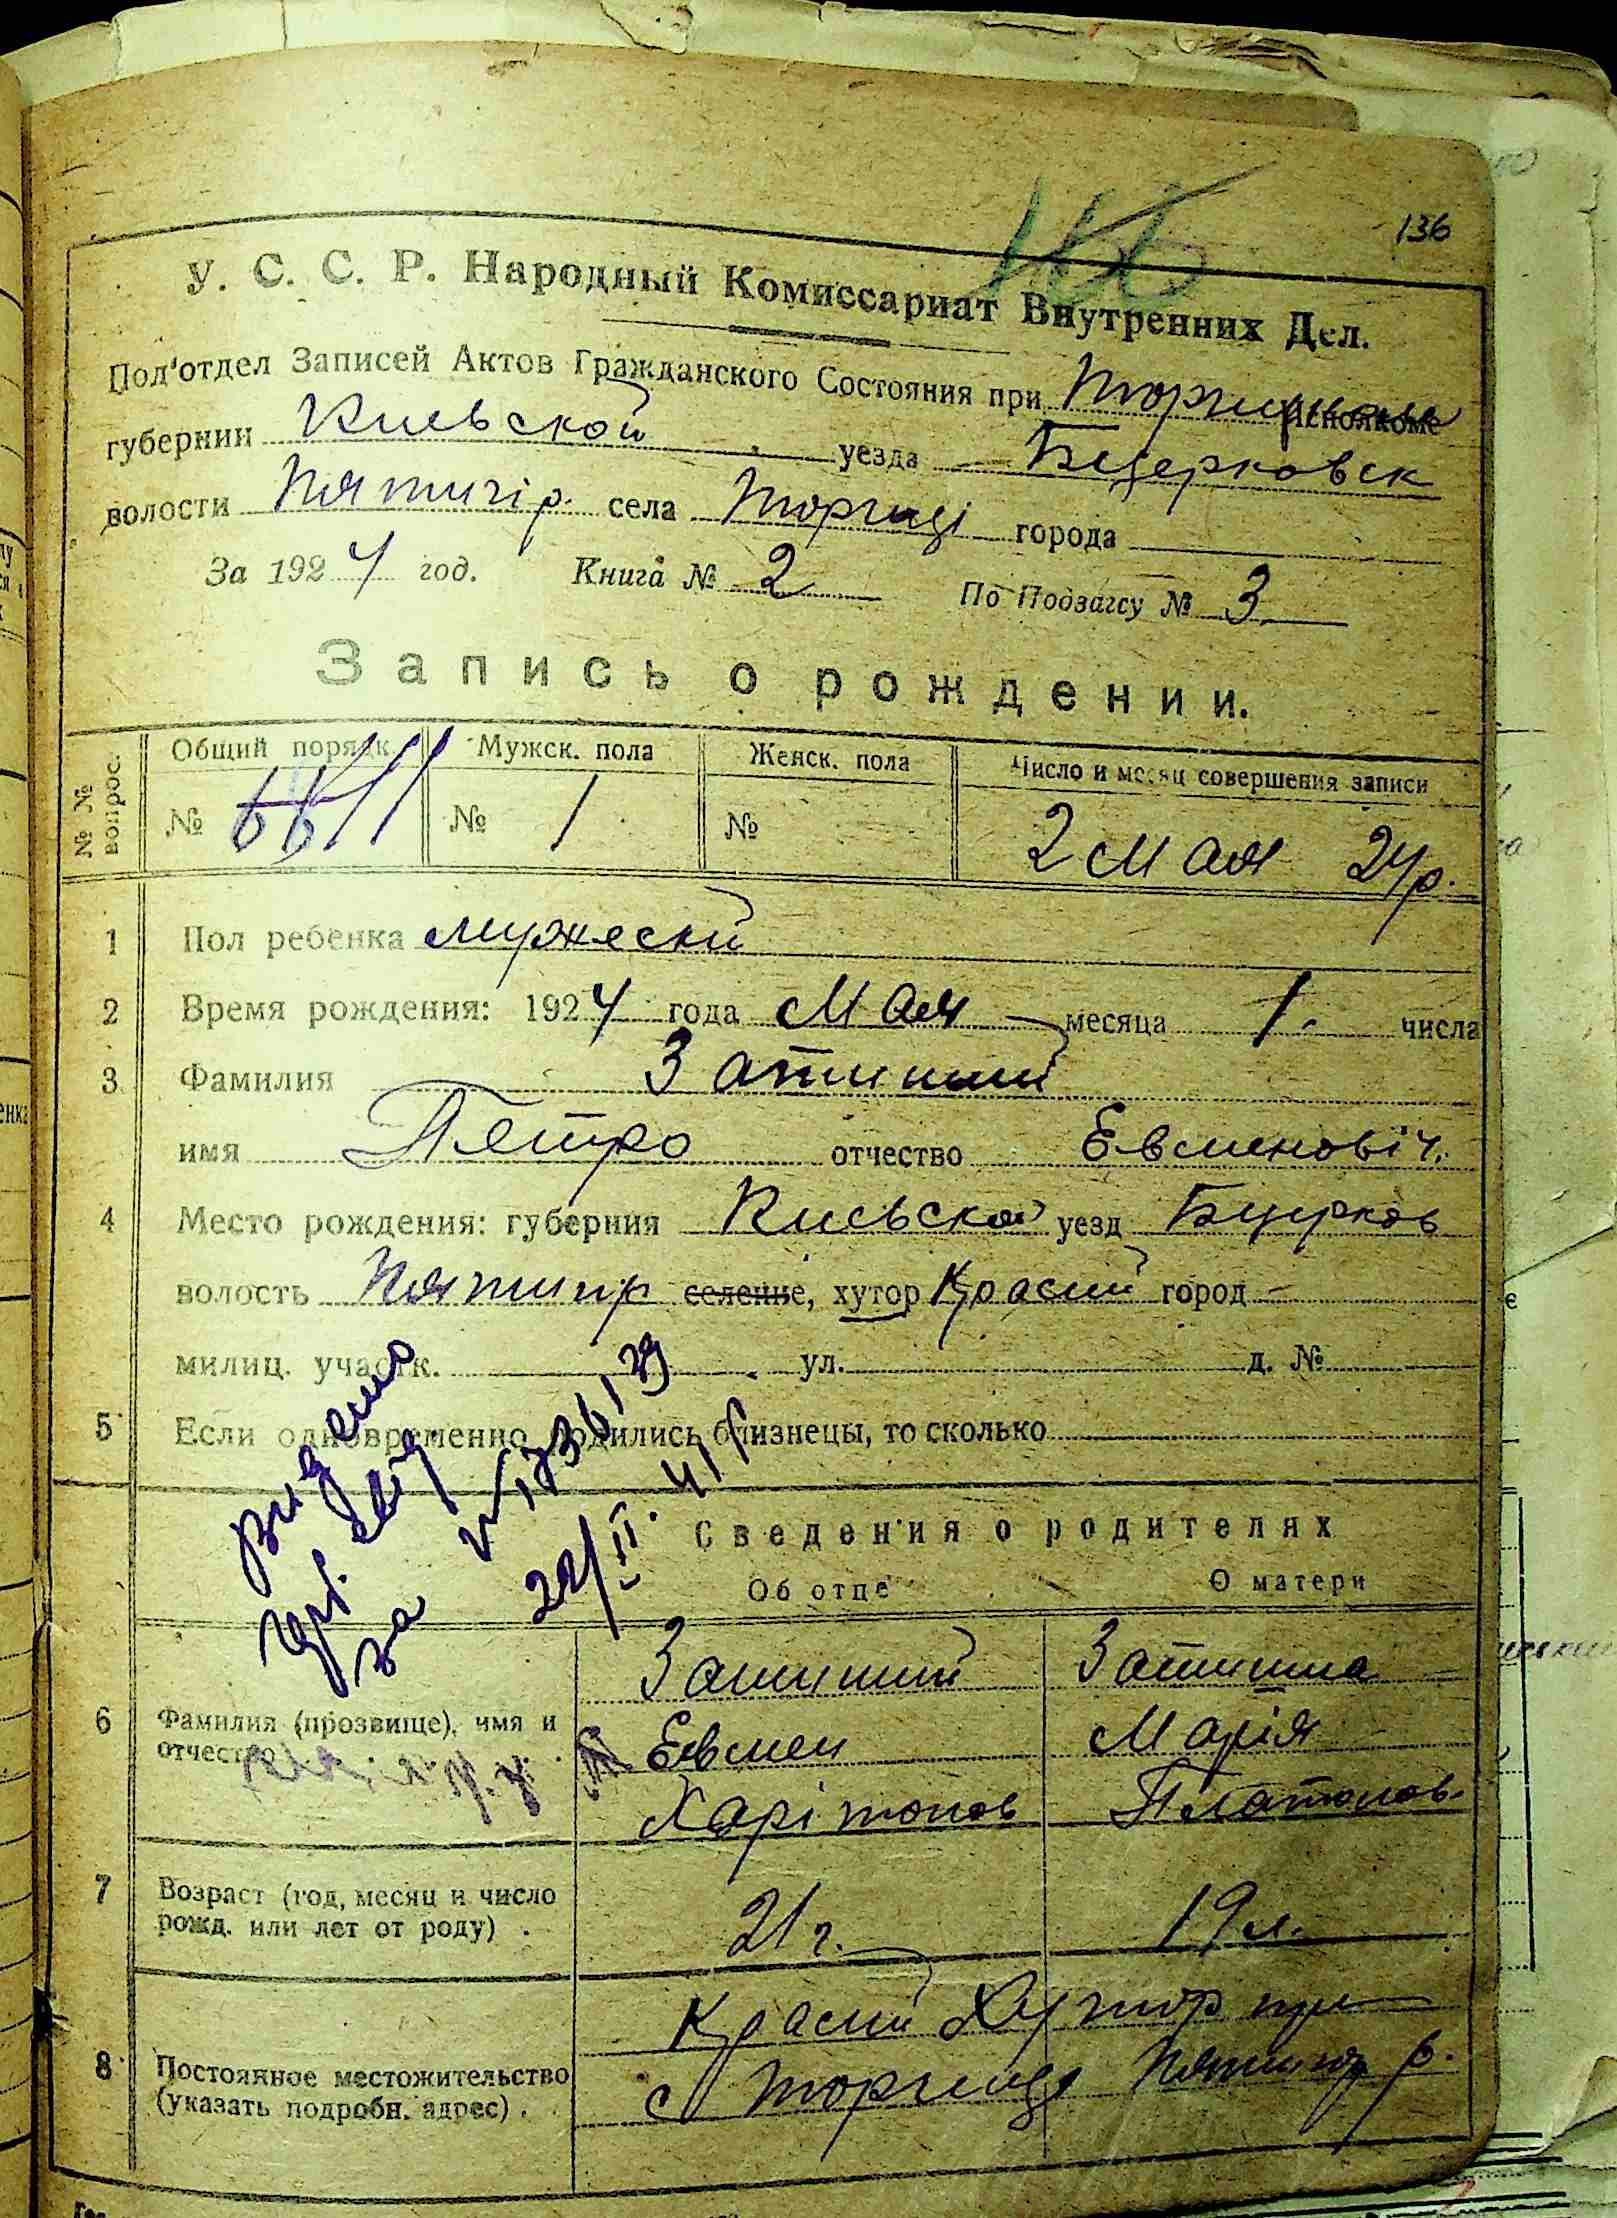 136
У. С. С. Р. Народный Комиссариат Внутренних Дел.
Под'отдел Записей Актов Гражданского Состояния при Исполкоме
губернии Киевской уезда Бцерковск
волости Пятигір. села Торчиці города
За 1924 год. Книга № 2 По Подзагсу № 3.
Запись о рождении.
№ № вопрос. Общий порядк. Мужск. пола Женск. пола Число и месяц совершения записи
№ № 1 № 2 Мая 24 р.
1 Пол ребенка мужеский
2 Время рождения: 1924 года Мая месяца 1. числа
3 Фамилия Затишний
имя Петро отчество Евменовіч.
4 Место рождения: губерния Киевской уезд Бцерков
волость Пятигир селение, хутор Красний город —
милиц. участк. ул. д. №
5 Если одновременно родились близнецы, то сколько
Видано
за № 1736/29
22/II. 41 г
Сведения о родителях
Об отце О матери
Затишний Затишна
6 Фамилия (прозвище), имя и отчество Евмен Марія
Харітонов Платонов.
7 Возраст (год, месяц и число рожд. или лет от роду) . 21 г. 19 л.
Красний Хутор при
8 Постоянное местожительство (указать подробн. адрес) . с Торчица р.